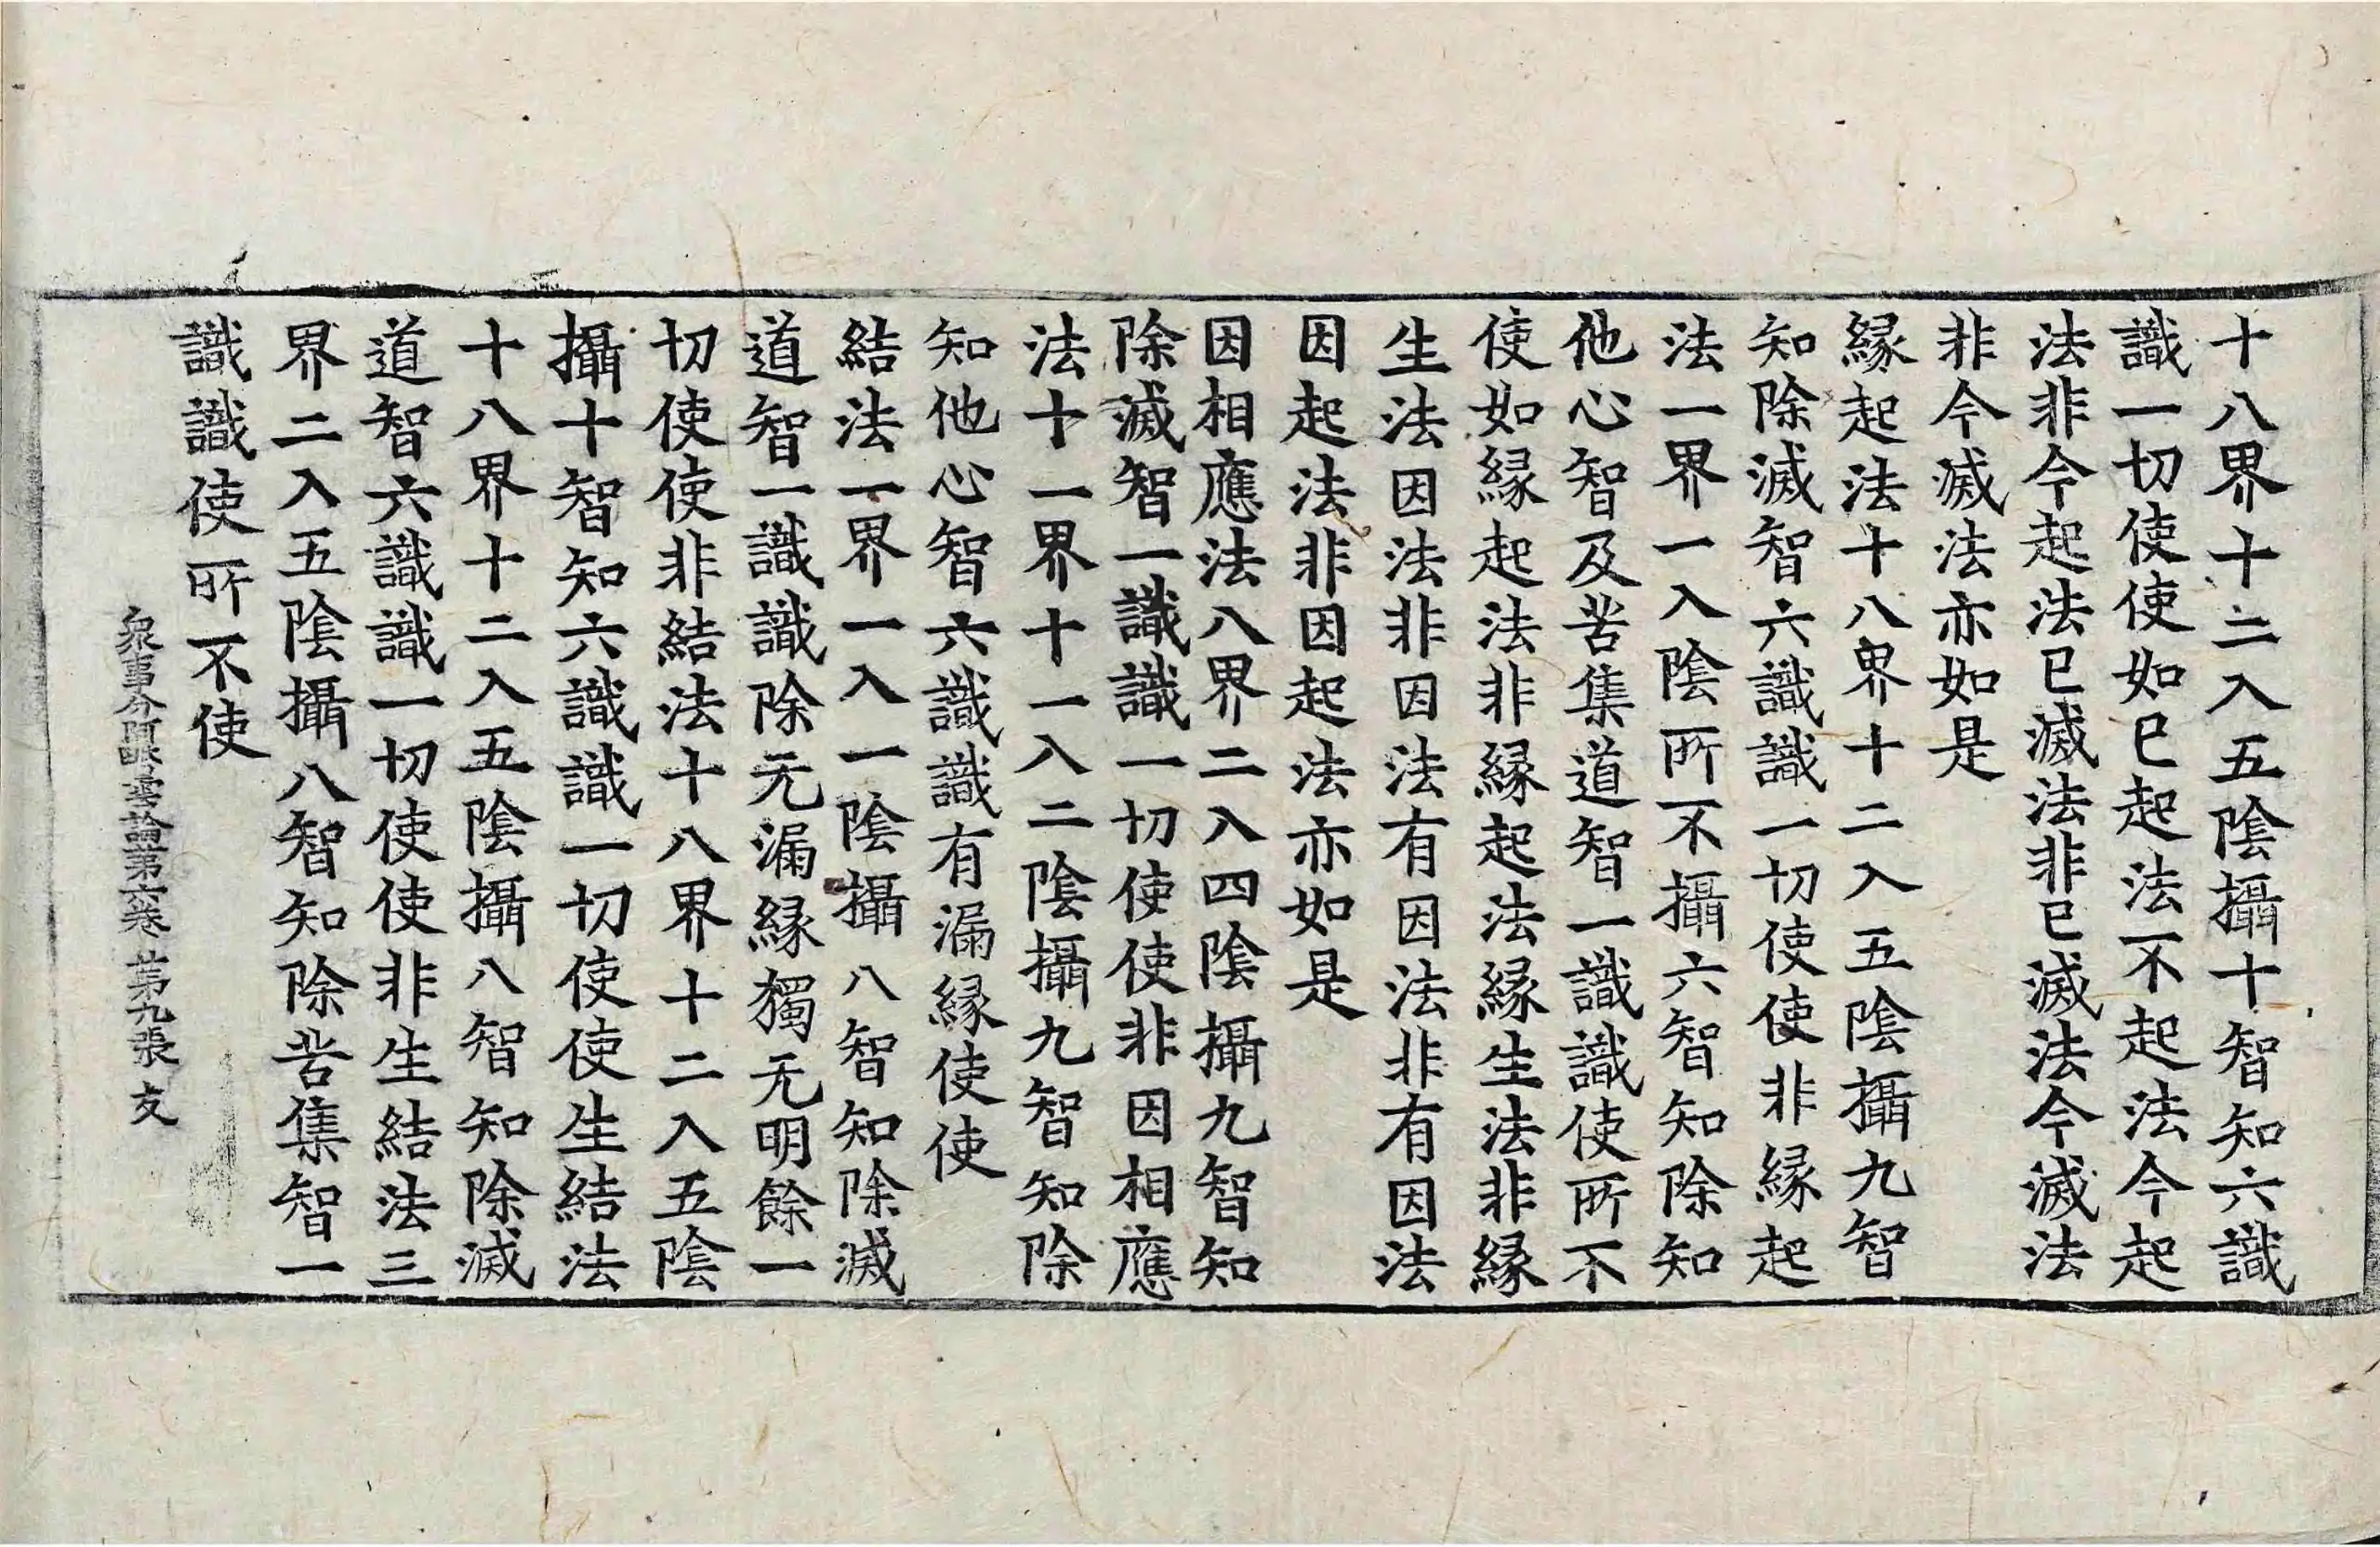 十八界十二入五陰攝十智知六識
識一切使使如已起法不起法今起
法非今起法已滅法非已滅法今滅法
非今滅法亦如是
緣起法十八界十二入五陰攝九智
知除滅智六識識一切使使非緣起
法一界一入陰所不攝六智知除知
他心智及苦集道智一識識使所不
使如緣起法非緣起法緣生法非緣
生法因法非因法有因法非有因法
因起法非因起法亦如是
因相應法八界二入四陰攝九智知
除滅智一識識一切使使非因相應
法十一界十一入二陰攝九智知除
知他心智六識識有漏緣使使
結法一界一入一陰攝八智知除滅
道智一識識除无漏緣獨无明餘一
切使使非結法十八界十二入五陰
攝十智知六識識一切使使生結法
十八界十二入五陰攝八智知除滅
道智六識識一切使使非生結法三
界二入五陰攝八智知除苦集智一
識識使所不使
衆事分阿毗曇論第六卷 第九張 友